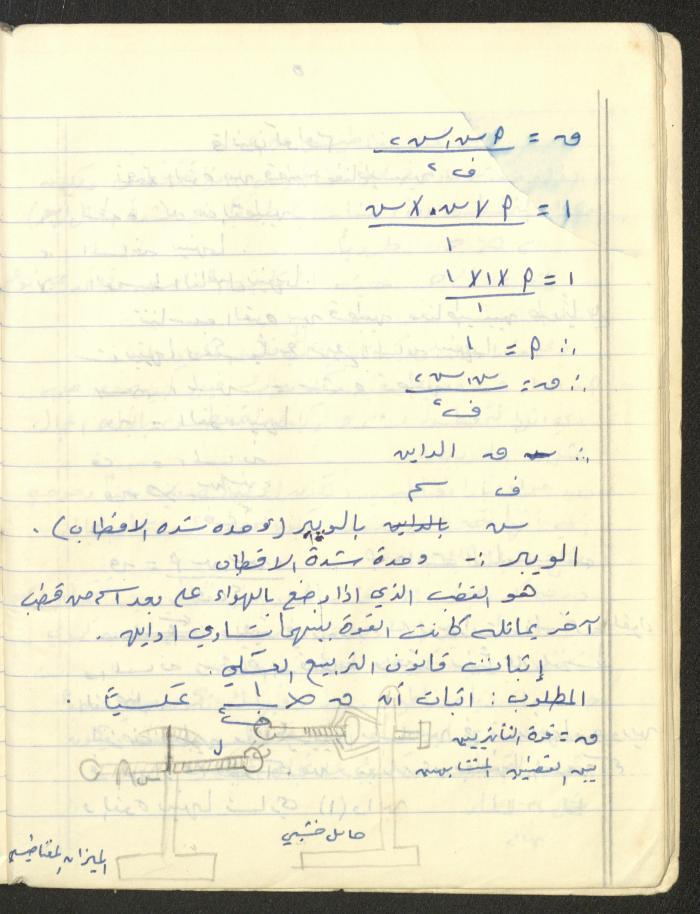 ق = م س١ س٢ / ف٢
١ = م × س × س / ١
١ = م × ١ × ١ / ١
∴ م = ١
∴ ق = س١ س٢ / ف٢
∴ ق الداين
ف سم
س بالداين بالويبر (وحده شده الاقطاب).
الويبر :- وحدة شدة الاقطاب
هو القطب الذي اذا وضع بالهواء على بعد ١سم من قطب
آخر يماثله كانت القوة بينهما تساوي ١ داين.
إثبات قانون التربيع العكسي.
المطلوب : اثبات أن ق ∝ ١/ف٢ عكسياً.
ق = قوة التنافر بين
بين القطبين المتشابهين
حامل خشبي
الميزان المغناطيسي